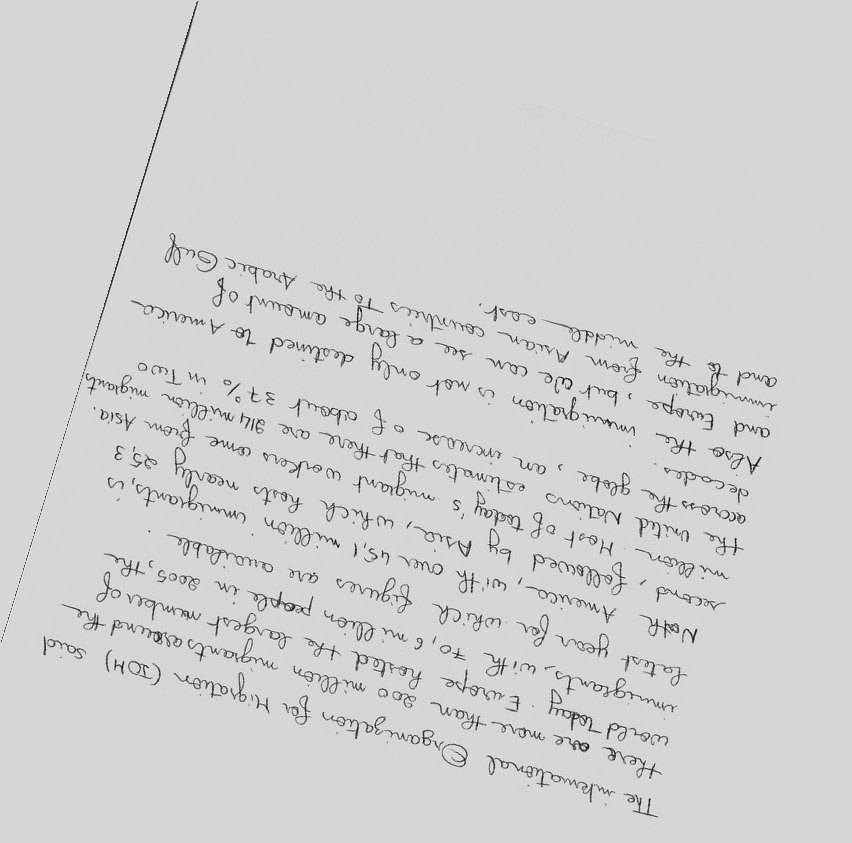 The international Organization for Migration (IOM) said
there are more than 200 million migrants around the
world today. Europe hosted the largest number of
immigrants, with 70,6 million people in 2005, the
latest year for which figures are available.
North America, with over 45,1 million immigrants, is
second, followed by Asia, which hosts nearly 25,3
million. Most of today's migrant workers come from Asia.
the United Nations estimates that there are 214 million migrants
accross the globe, an increase of about 37% in Two
decades.
Also the immigration is not only destined to America
and Europe, but we can see a large amount of
immigration from Asian countries to the Arabic Gulf
and to the middle-east.